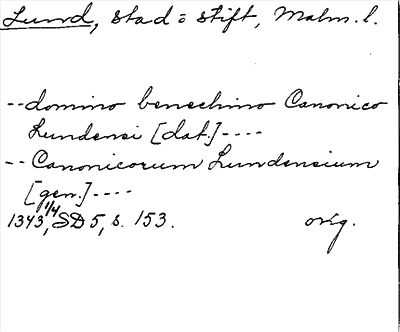 Lund, stad = stift, Malm. l.
-- domino benechino Canonico
Lundensi [dat.] ----
-- Canonicorum Lundensium
[gen.] ----
1343 1/4, SD 5, s. 153. orig.